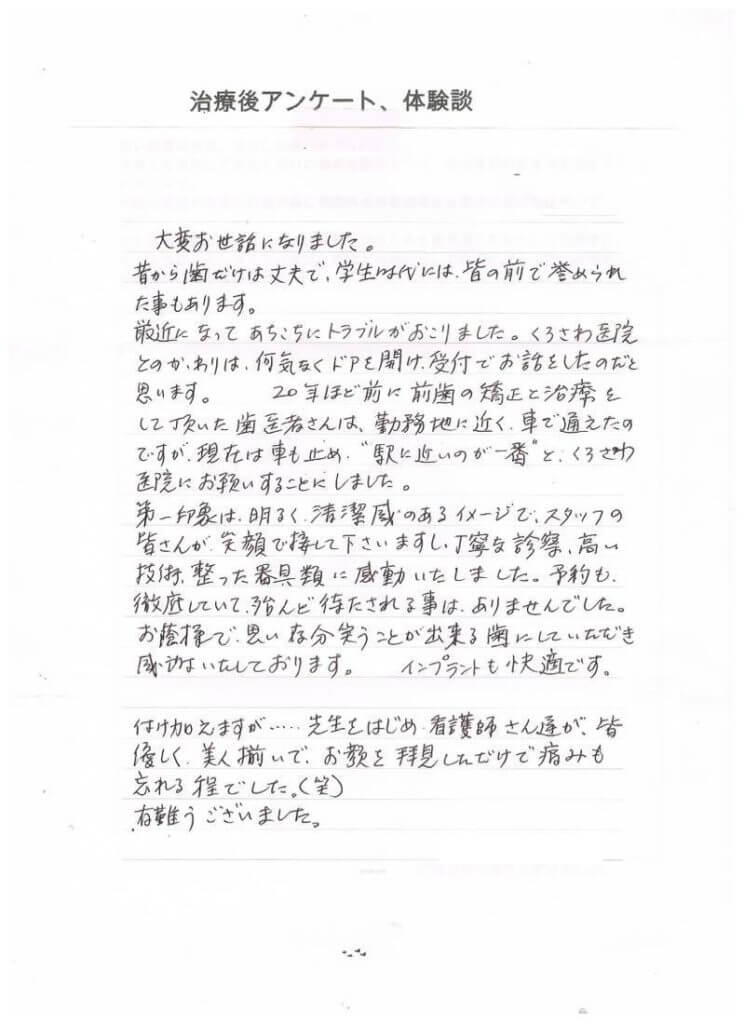 治療後アンケート、体験談
大変お世話になりました。
昔から歯だけは丈夫で、学生時代には、皆の前で誉められ
た事もあります。
最近になって あちこちにトラブルがおこりました。くろさわ医院
とのかゝわりは、何気なくドアを開け、受付でお話をしたのだと
思います。 20年ほど前に前歯の矯正と治療を
して頂いた歯医者さんは、勤務地に近く、車で通えたの
ですが、現在は車も止め、“駅に近いのが一番”と、くろさわ
医院にお願いすることにしました。
第一印象は、明るく、清潔感のあるイメージで、スタッフの
皆さんが、笑顔で接して下さいますし、丁寧な診察、高い
技術、整った器具類に感動いたしました。予約も、
徹底していて、殆んど待たされる事は、ありませんでした。
お蔭様で、思い存分笑うことが出来る歯にしていただき
感謝いたしております。 インプラントも快適です。
付け加えますが……先生をはじめ、看護師さん達が、皆
優しく、美人揃いで、お顔を拝見しただけで痛みも
忘れる程でした。(笑)
有難うございました。